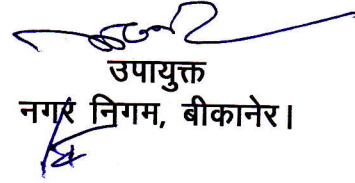 उपायुक्त
नगर निगम, बीकानेर।